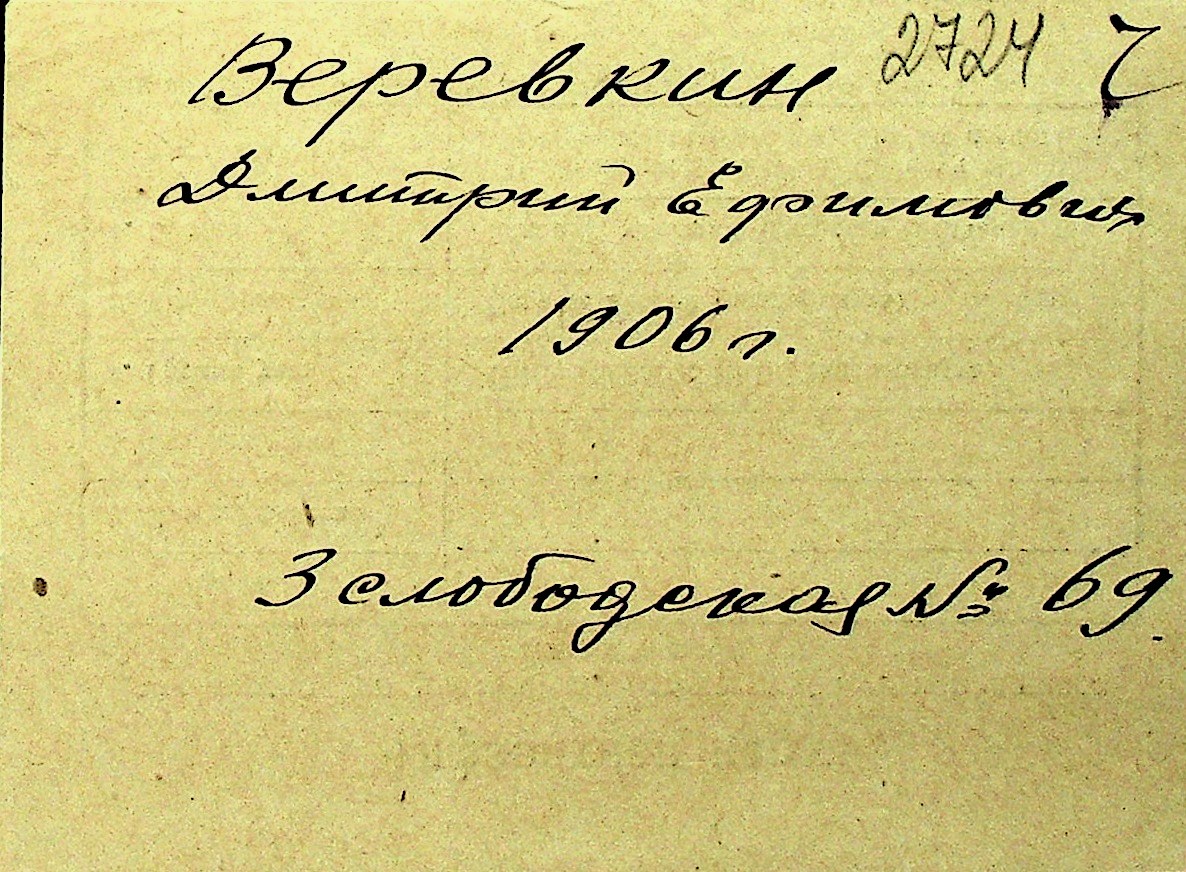 Веревкин 2724
Дмитрий Ефимович
1906 г.
3 слободская № 69.